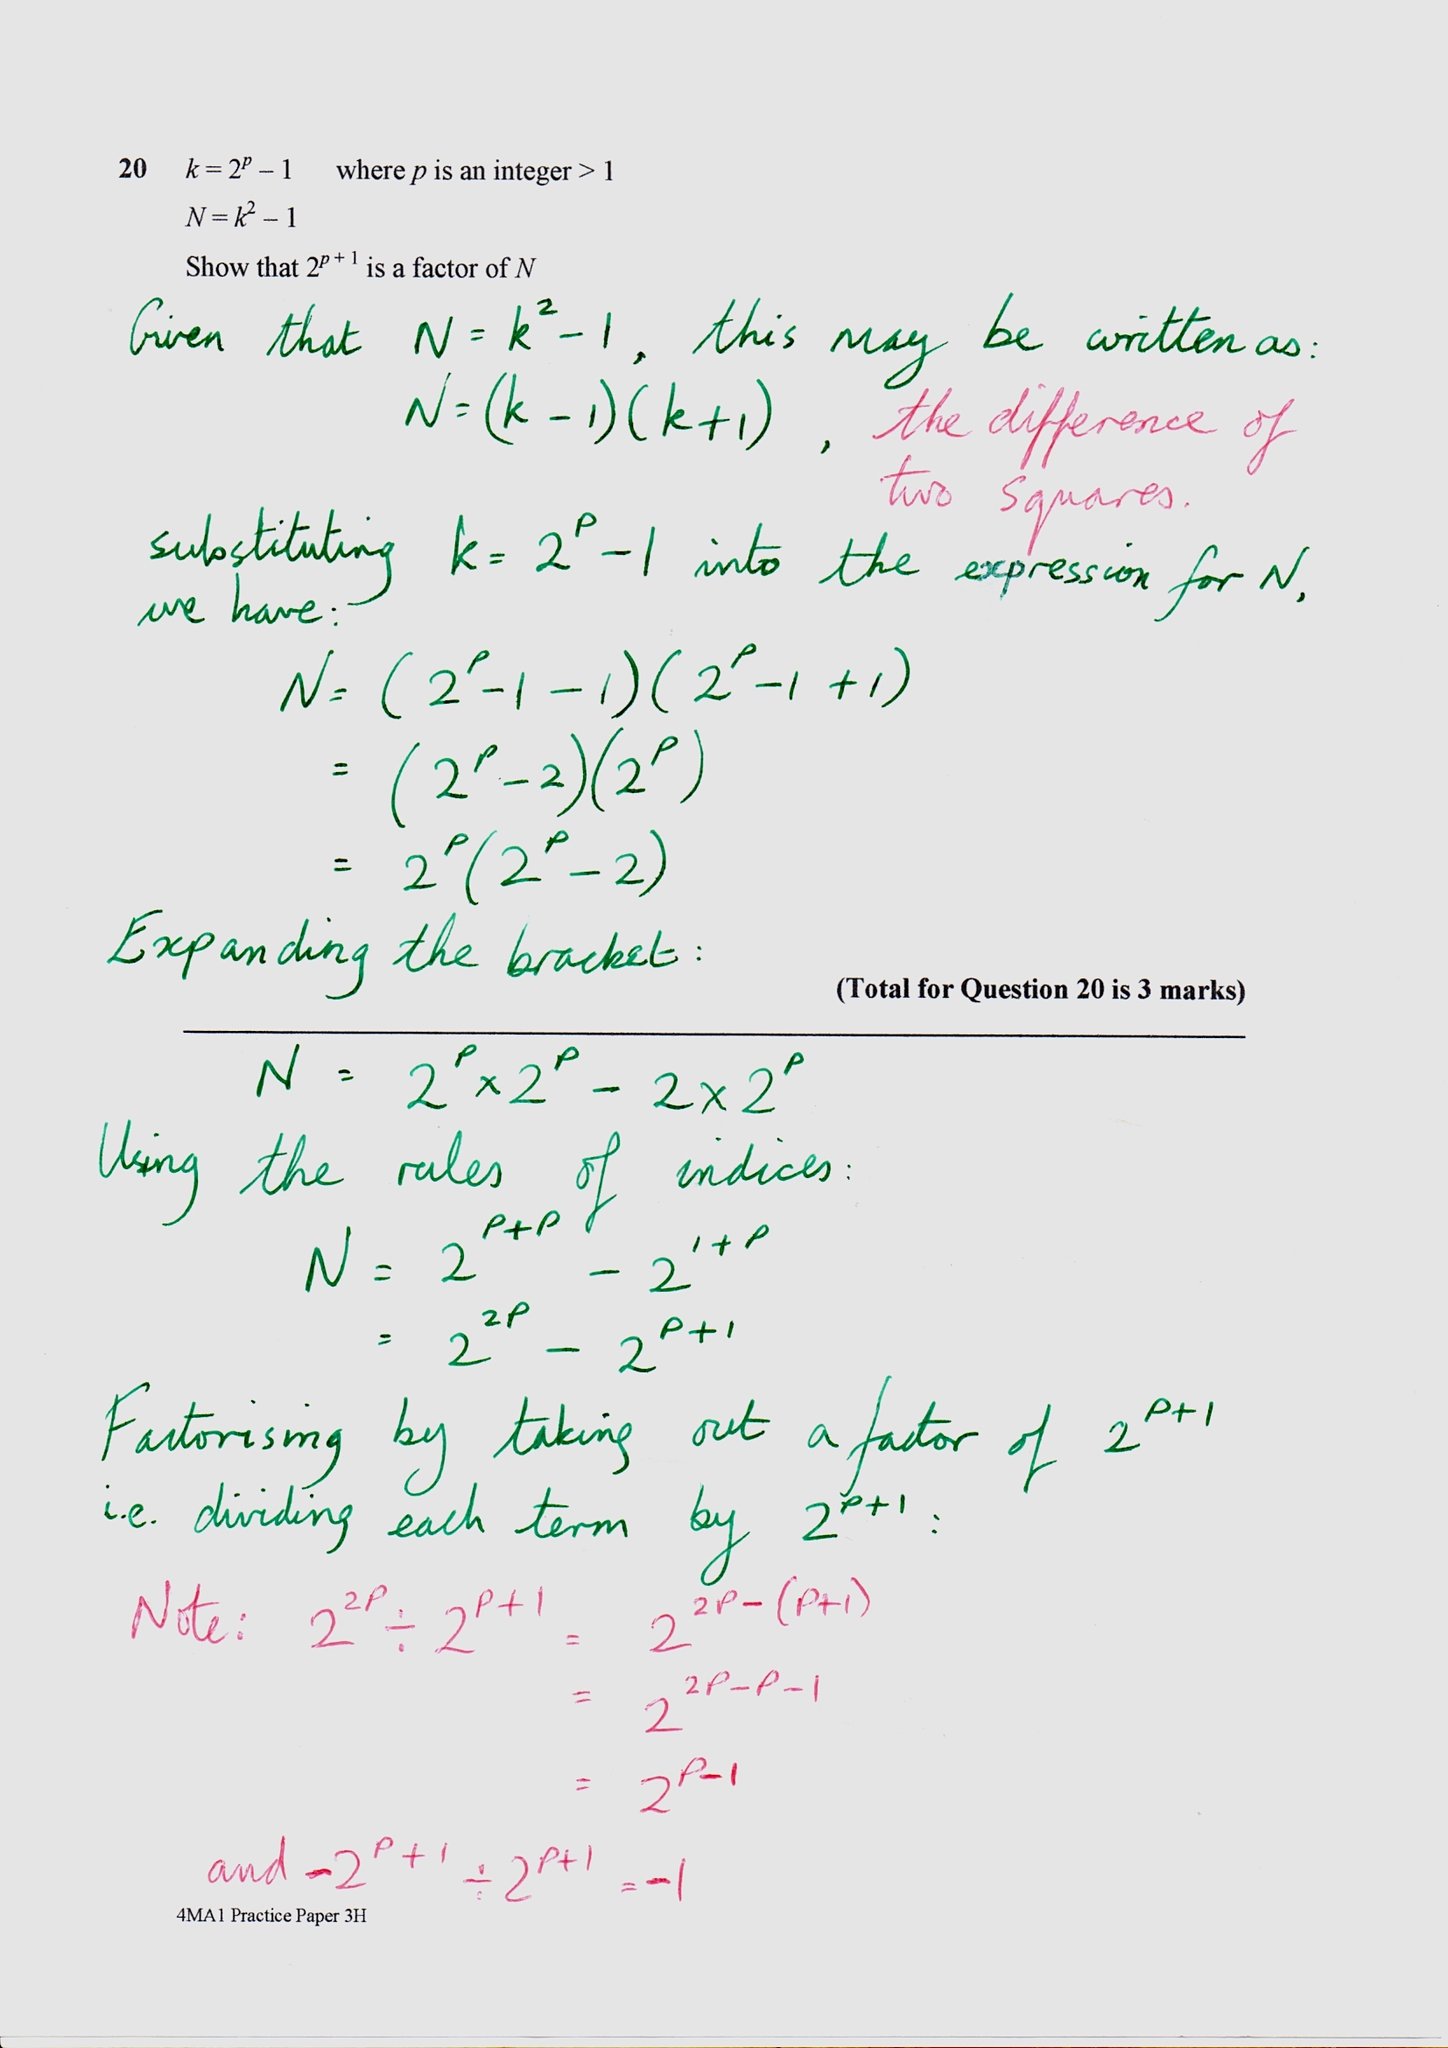 20 k = 2^p – 1 where p is an integer > 1
N = k² – 1
Show that 2^(p + 1) is a factor of N
Given that N = k² – 1, this may be written as:
N = (k – 1)(k + 1), the difference of
two squares.
substituting k = 2^p – 1 into the expression for N,
we have:
N = (2^p – 1 – 1)(2^p – 1 + 1)
= (2^p – 2)(2^p)
= 2^p(2^p – 2)
Expanding the bracket:
(Total for Question 20 is 3 marks)
N = 2^p × 2^p – 2 × 2^p
Using the rules of indices:
N = 2^(p+p) – 2^(1+p)
= 2^(2p) – 2^(p+1)
Factorising by taking out a factor of 2^(p+1)
i.e. dividing each term by 2^(p+1):
Note: 2^(2p) ÷ 2^(p+1) = 2^(2p–(p+1))
= 2^(2p–p–1)
= 2^(p–1)
and –2^(p+1) ÷ 2^(p+1) = –1
4MA1 Practice Paper 3H